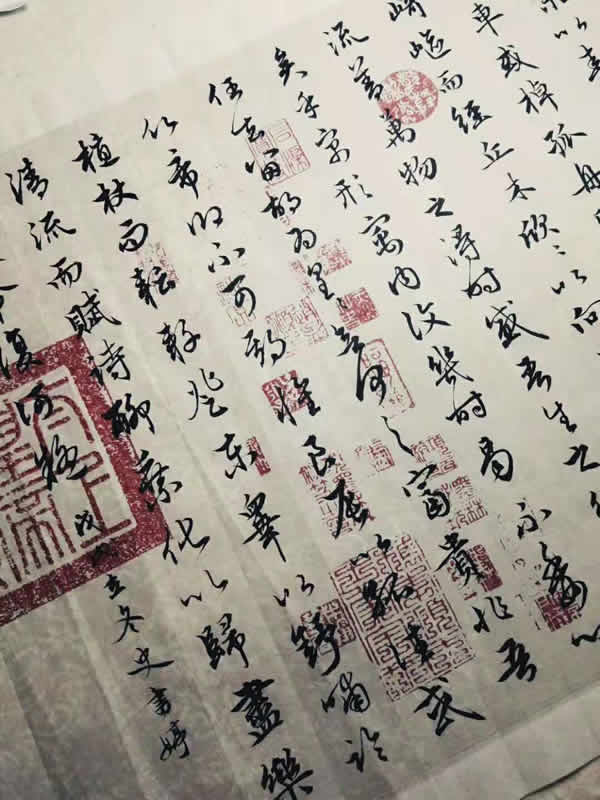 以春
車或棹孤舟
崎嶇而經丘木欣々以向
流善萬物之得時感吾生之
矣乎寓形寓内復幾時曷不委心
任去留胡為遑欲何之富貴非吾
願帝鄉不可期懷良辰以孤往或
植杖而耘耔登東皋以舒嘯臨
清流而賦詩聊乘化以歸盡樂
天命復奚疑 戊戌立冬史書婷